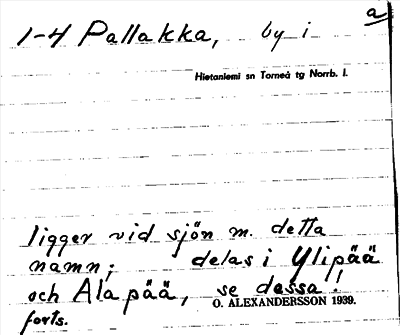 a
1-4 Pallakka, by i
Hietaniemi sn Torneå tg Norrb. l.
ligger vid sjön m. detta
namn; delas i Ylipää
och Alapää, se dessa!
O. ALEXANDERSSON 1939.
forts.